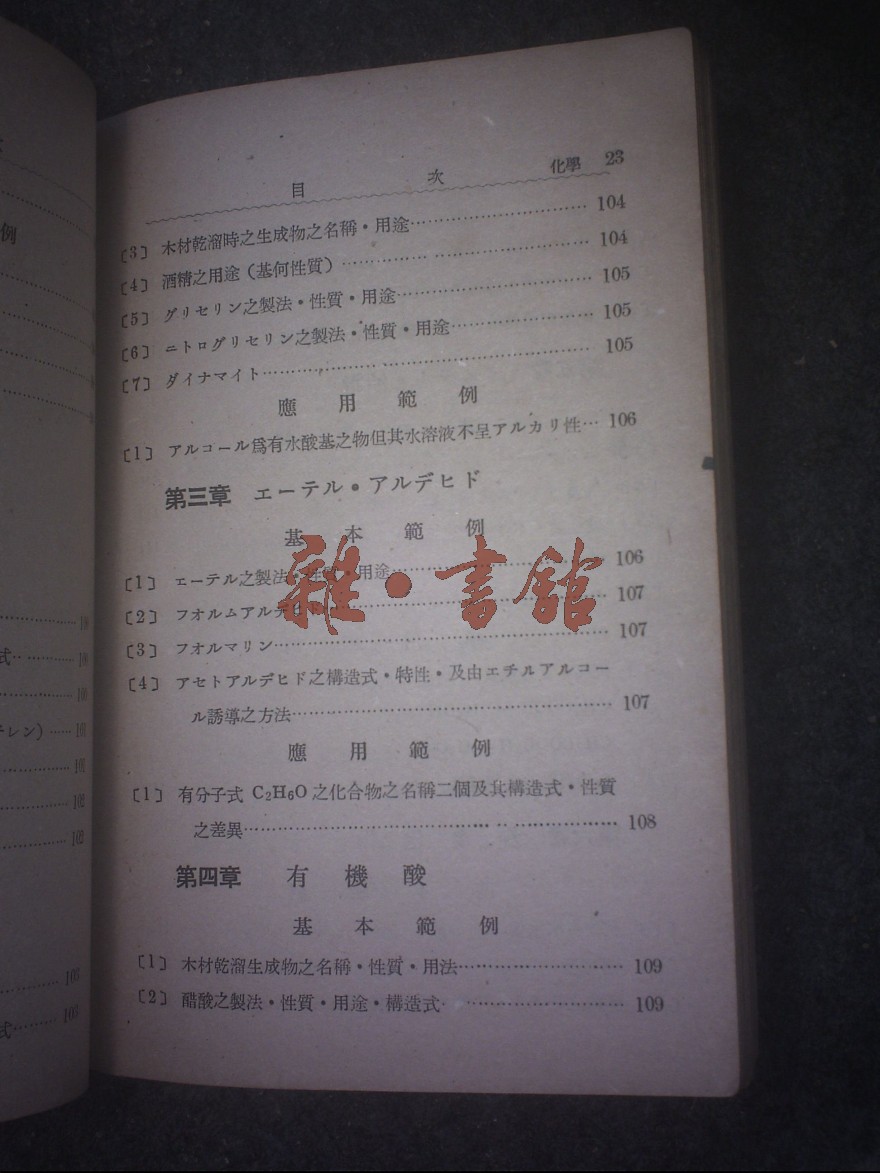 目 次 化學 23
〔3〕 木材乾溜時之生成物之名稱・用途 104
〔4〕 酒精之用途（基何性質） 104
〔5〕 グリセリン之製法・性質・用途 105
〔6〕 ニトログリセリン之製法・性質・用途 105
〔7〕 ダイナマイト 105
應用範例
〔1〕 アルコール爲有水酸基之物但其水溶液不呈アルカリ性 106
第三章 エーテル・アルデヒド
基本範例
〔1〕 エーテル之製法・性質・用途 106
〔2〕 フオルムアルデヒド 107
〔3〕 フオルマリン 107
〔4〕 アセトアルデヒド之構造式・特性・及由エチルアルコー
ル誘導之方法 107
應用範例
〔1〕 有分子式 C₂H₆O 之化合物之名稱二個及其構造式・性質
之差異 108
第四章 有機酸
基本範例
〔1〕 木材乾溜生成物之名稱・性質・用法 109
〔2〕 醋酸之製法・性質・用途・構造式 109
雜・書館
例
式
レン)
式